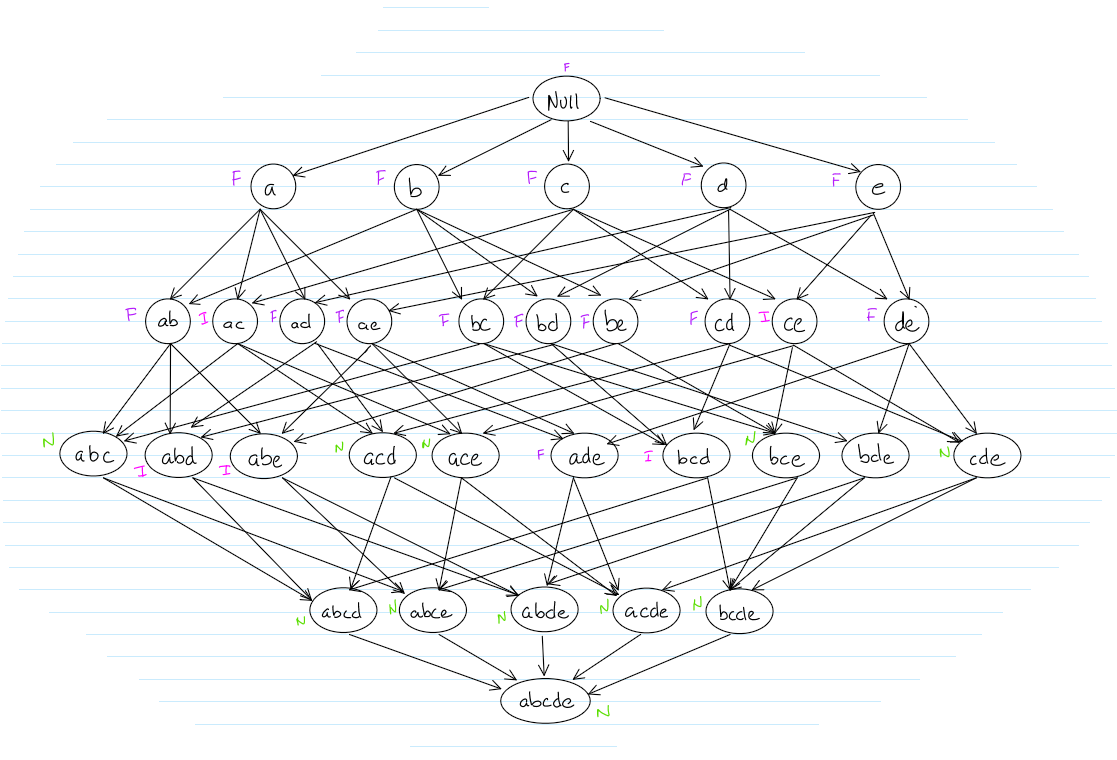 F
Null
F a F b F c F d F e
F ab I ac F ad F ae F bc F bd F be F cd I ce F de
N abc I abd I abe N acd N ace F ade I bcd N bce bde N cde
N abcd N abce N abde N acde N bcde
abcde N